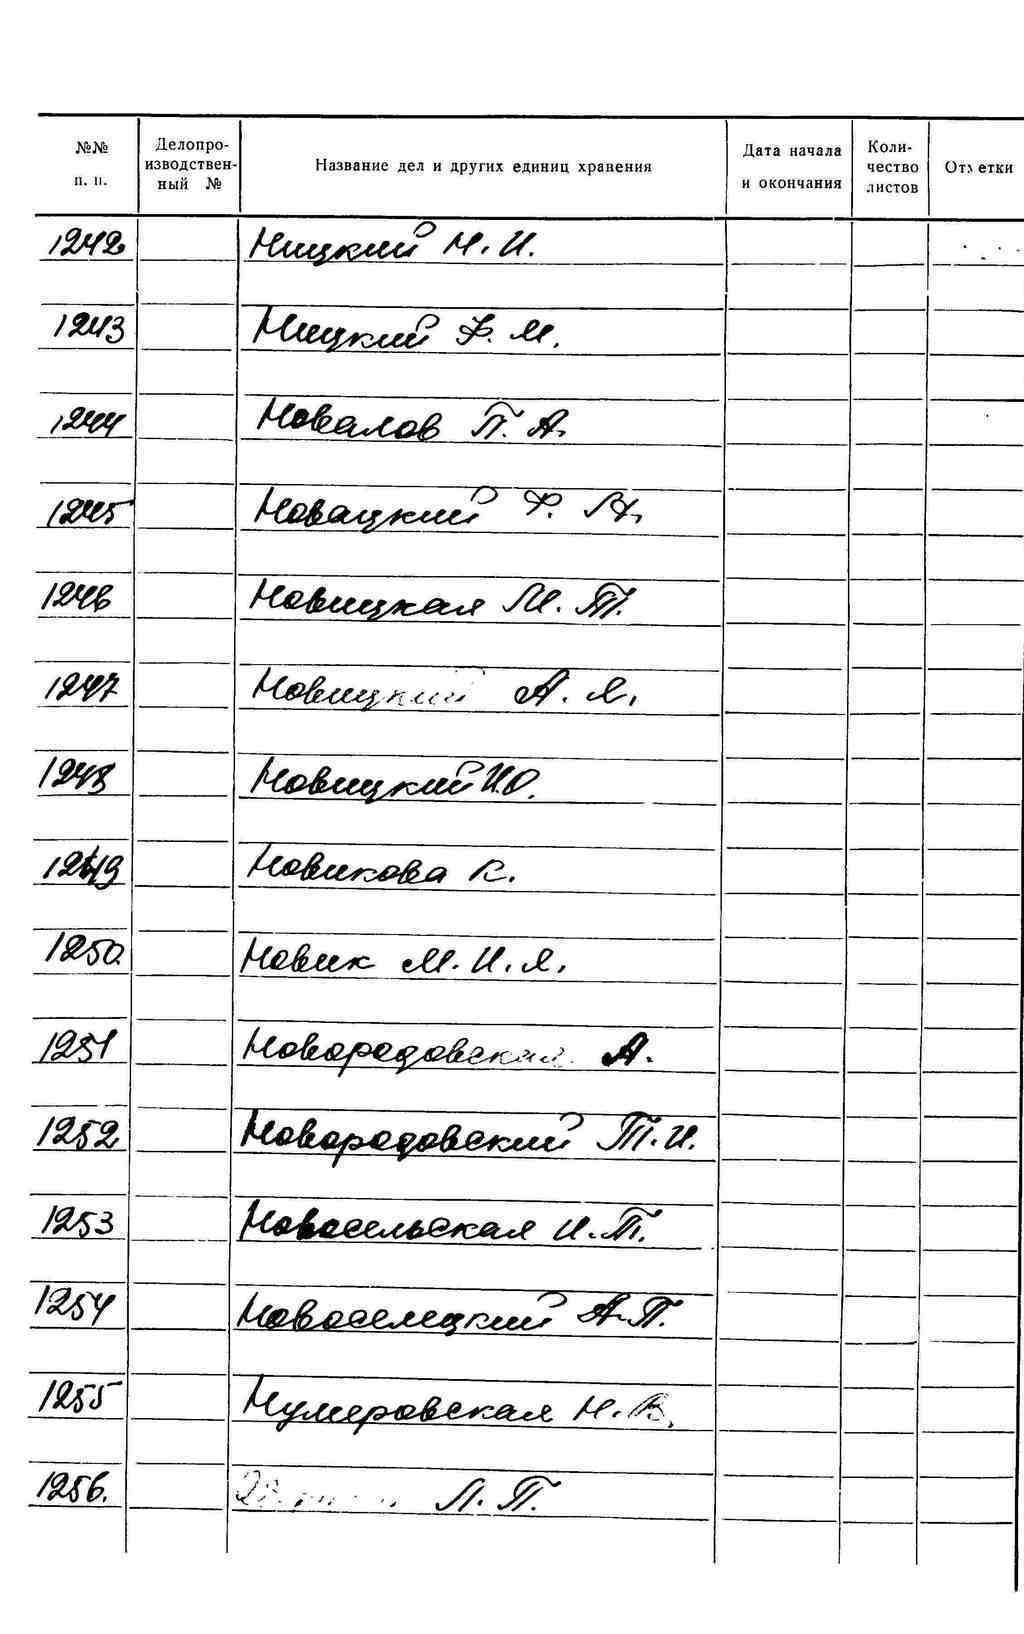 №№ п. п. Делопроизводственный № Название дел и других единиц хранения Дата начала и окончания Количество листов Отметки
1242 Ницкий Н. И.
1243 Ницкий Ф. М.
1244 Новалов П. А.
1245 Новацкий Ф. Н.
1246 Новицкая М. Т.
1247 Новицкий А. Я.
1248 Новицкий И.О.
1249 Новикова К.
1250. Новик М. И. Я.
1251 Новородовская А.
1252 Новородовский Т. И.
1253 Новосельская И. Т.
1254 Новоселецкий А. П.
1255 Нумеровская Н. В.
1256. Л. П.